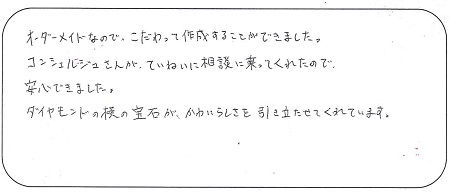 オーダーメイドなので、こだわって作成することができました。
コンシェルジュさんが、ていねいに相談に乗ってくれたので、
安心できました。
ダイヤモンドの横の宝石が、かわいらしさを引き立たせてくれています。